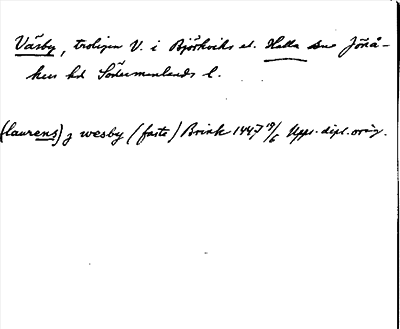 Väsby, troligen V. i Björkviks el. Halla snr Jönå-
kers hd Södermanlands l.
(laurens) j wesby (faste) Brink 1447 19/6 Upps. dipl. orig.